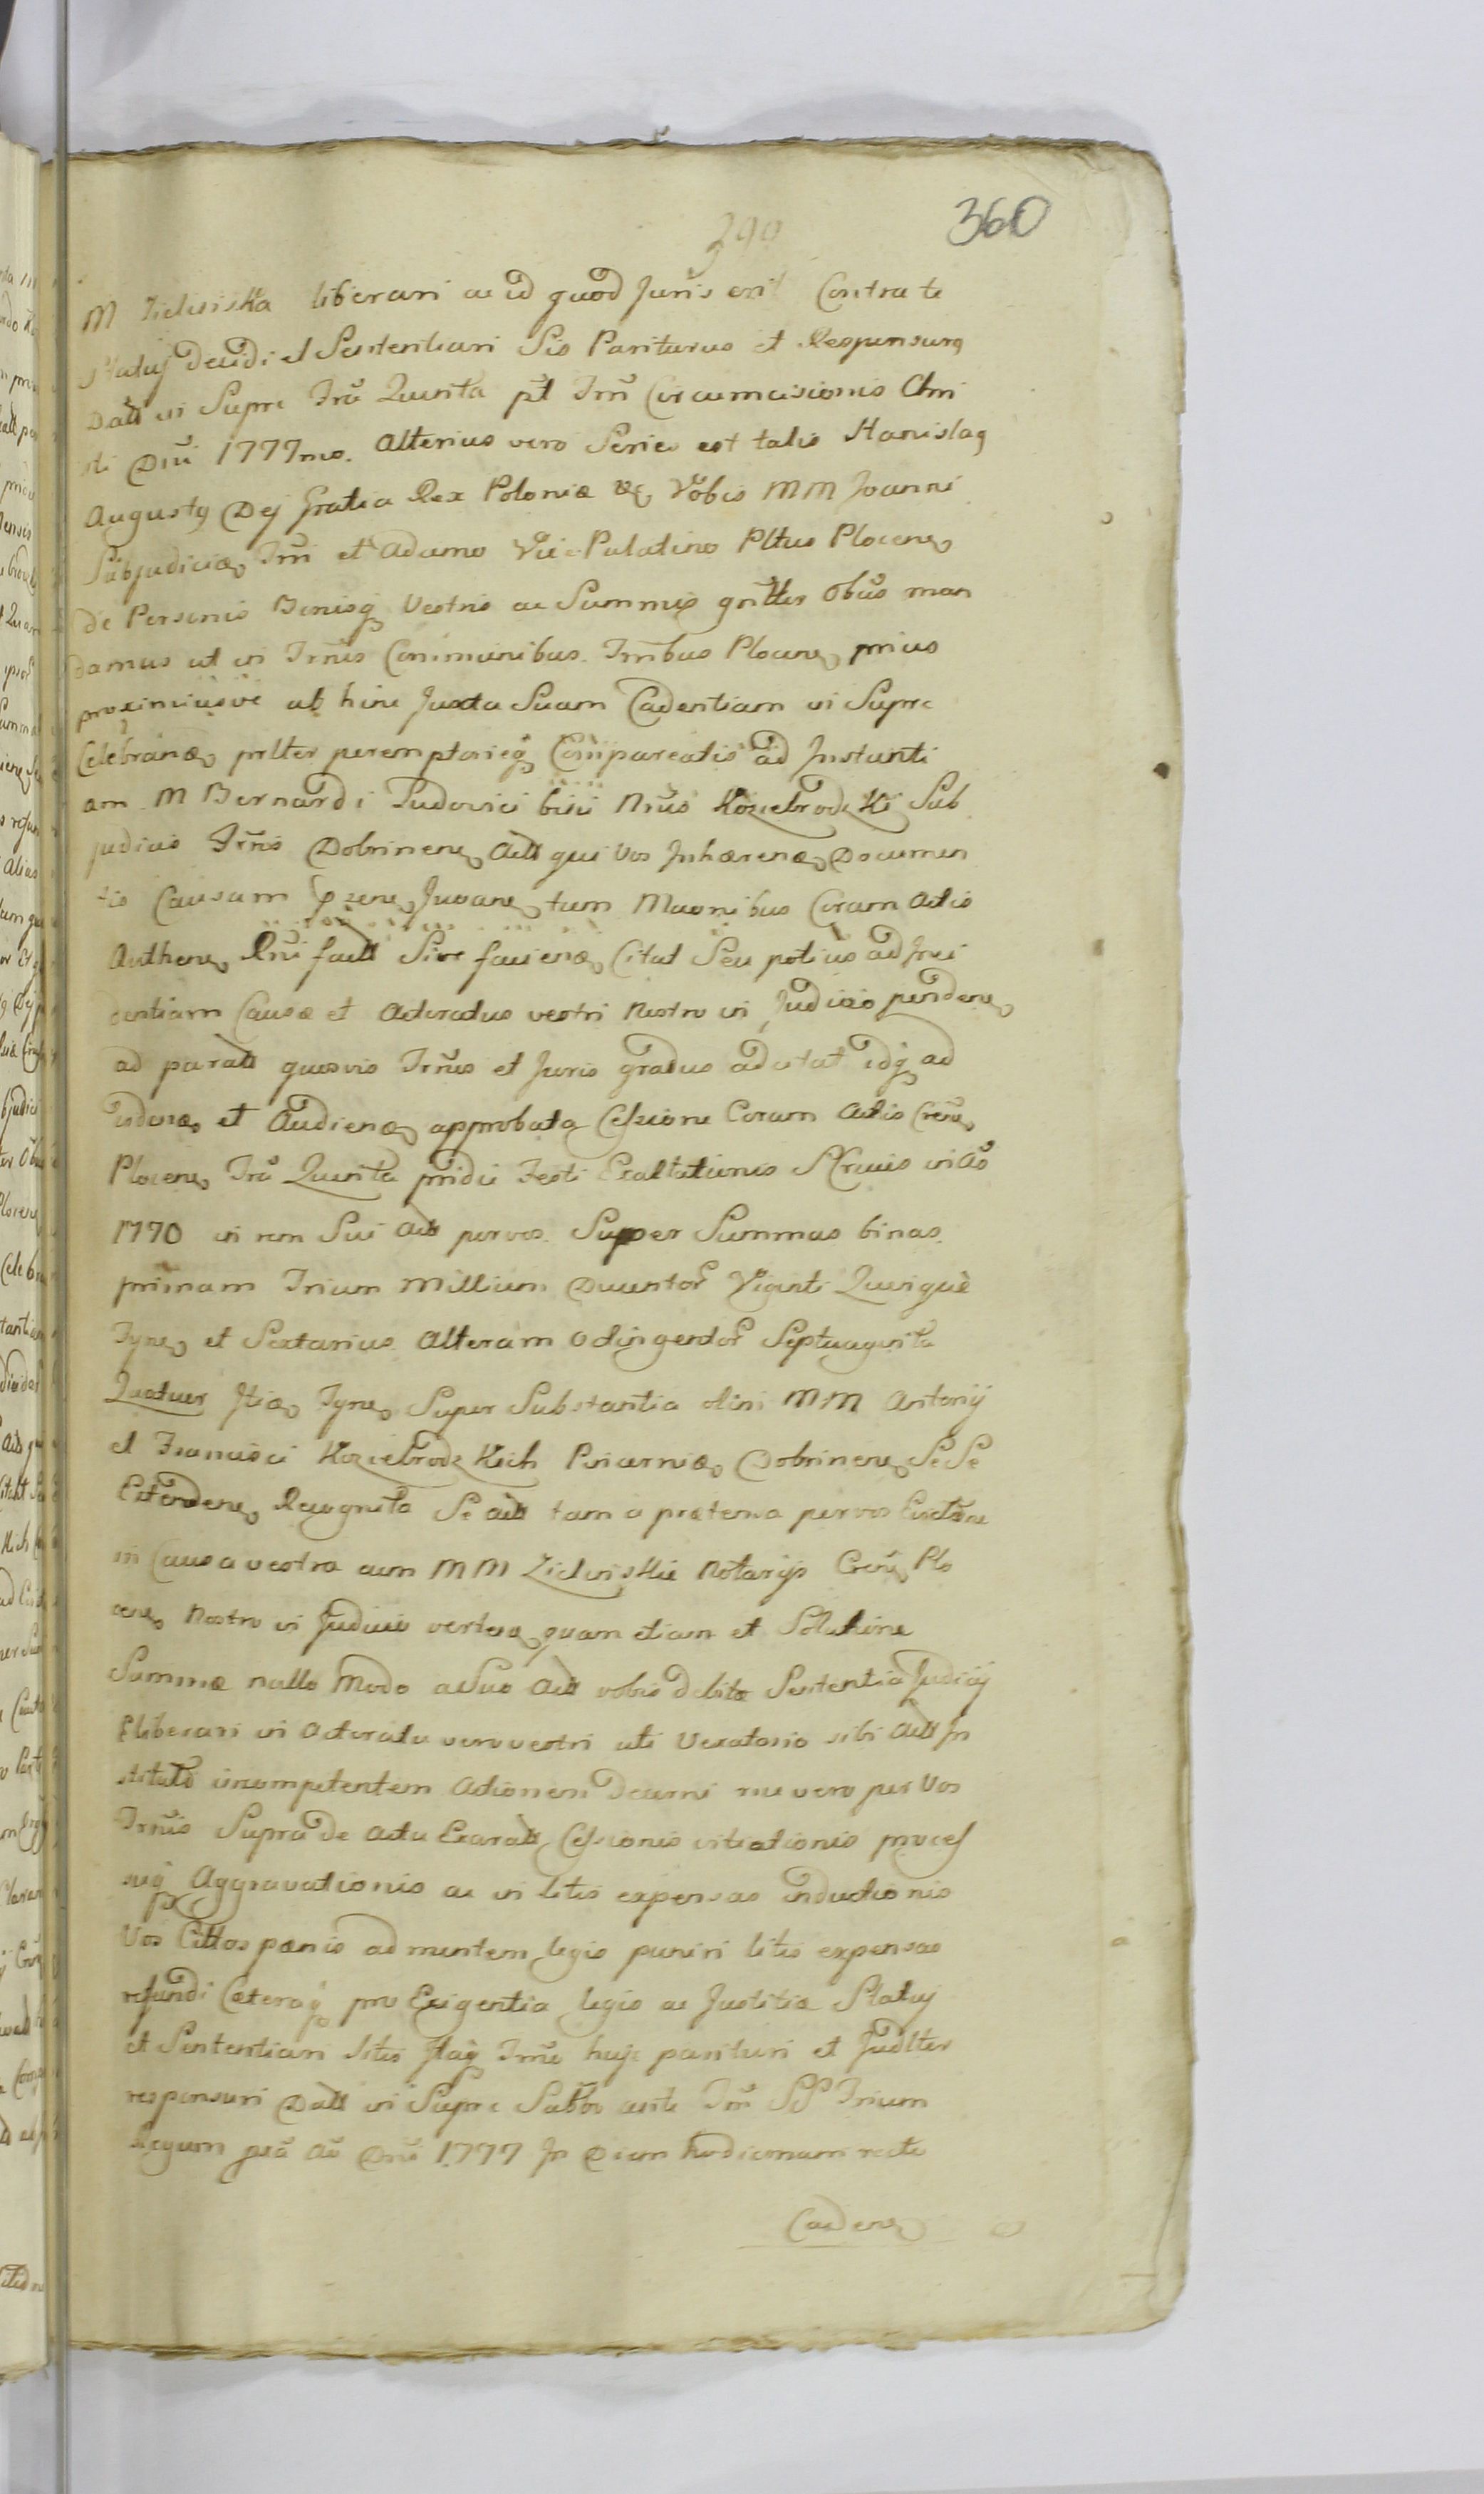 390 360
M Zieliński liberari ac id quod Juris erit Contra te
Statuj decidi et Sententiari Sis Pariturus et Responsurq
Datt in Sierpc Fria Quinta pt Fm Circumcisionis Chri
sti Dni 1777mo. Alterius vero Series est talis Stanislaq
Augustq Dej Gratia Rex Poloniæ &c Vobis MM Joanni
Subjudici Trri et Adamo Vice Palatino Pltus Plocen
de Personis Bonisq Vestris ac Summis gnlter Obus man
damus ut in Trnis Communibus Trribus Plocen prius
proximiusve ab hinc Juxta Suam Cadentiam in Sierpc
Celebran prlter peremptorieq Compareatis ad Instanti
am M Bernardi Ludovici bin Nrus Koziebrodzki Sub
judicis Trris Dobrinen Actt qui Vos Inhæren Documen
tis Causam psen Juvan tum Munibus Coram Actis
Authen Rni factt Sive facien Citat Seu potius ad Inci
dentiam Causæ et Actoratus vestri Nostro in Judicio penden
ad paratt quosvis Trnos et Juris gradus adcitat idq ad
viden et Audien approbata Cessione Coram Actis Cren
Plocen Fria Quinta pridie Festi Exaltationis S Crucis in Ao
1770 in rem Sui Actt per vos. Super Summas binas
primam Trium Millium Ducentor Viginti Quinque
Tyn et Sextarius Alteram octingentor Septuaginta
Quatuor Itid Tyn Super Substantia olim MM Antonij
et Francisci Koziebrodzkich Pincerni Dobrinen Se Se
Extenden Recognita Se actt tam a prætensa per vos Evictione
in Causa vestra cum MM Zielinskie Notarijs Cren Plo
cen Nostro in Judicio verten quam etiam et Solutione
Summæ nullo Modo a Suo Actt vobis debitæ Sententia Judicij
Eliberari in Actoratu vero vestri uti Vexatorio sibi Actt In
stituto incompetentem Actionem decerni nec vero per Vos
Trnis Supra de Actu Exaratt Cessionis vitiationis proces
suq Aggravationis ac in litis expensas inductionis
Vos Cittos pænis ad mentem legis puniri litis expensas
refundi Cæteraq pro Exigentia legis ac Justitiæ Statuj
et Sententiari Sitis Itaq Trme huje parituri et Judlter
responsuri Datt in Sierpc Sabbo ante Fm SS Trium
Regum pxa Ao Dni 1777 In Diem hodiernum recte
Caden